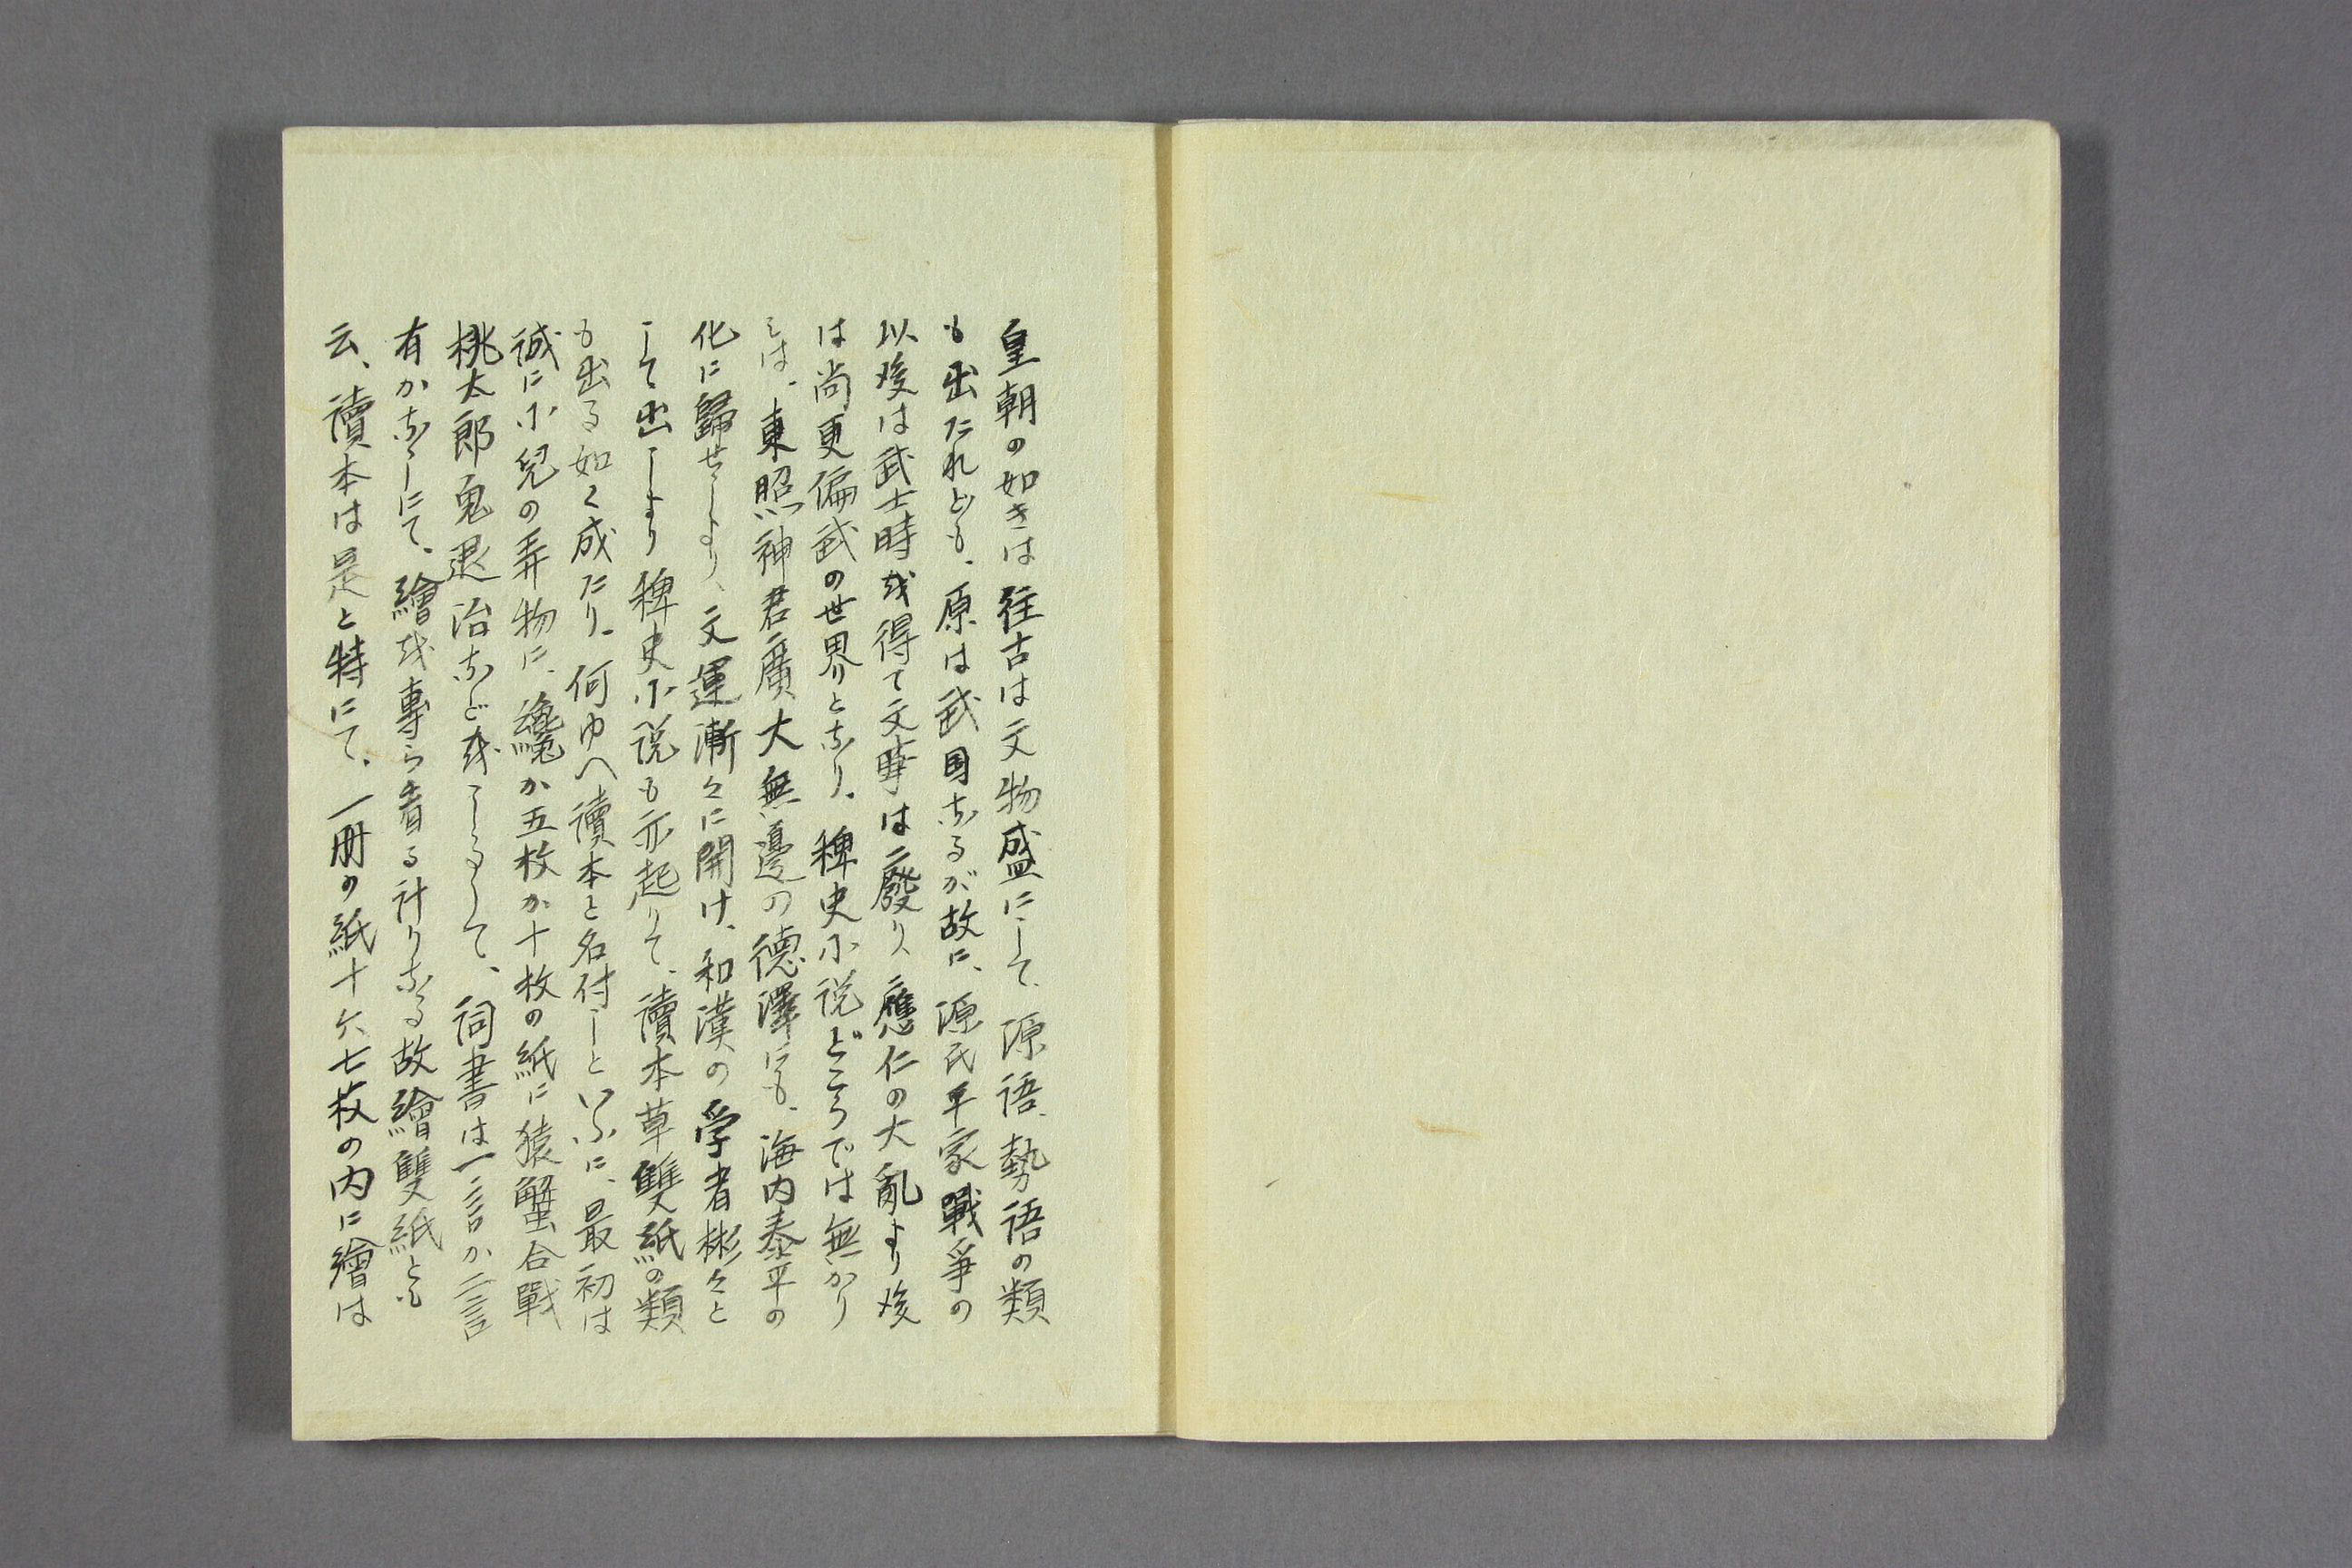 皇朝の如きは往古は文物盛にして、源語、勢語の類
も出たれども、原は武国なるが故に、源氏平家戰爭の
以後は武士時を得て文事は廢り、應仁の大亂より後
は尚更偏武の世界となり、稗史小説どころでは無かり
しは、東照神君廣大無邊の德澤にも、海内泰平の
化に歸せしより、文運漸々に開け、和漢の学者彬々と
して出しより稗史小説も亦起りて、讀本草雙紙の類
も出る如く成たり、何ゆへ讀本と名付しといふに、最初は
誠に小兒の弄物に、纔か五枚か十枚の紙に猿蟹合戰
桃太郎鬼退治などをしるして、詞書は一言か二言
有かなしにて、繪を專ら看る計りなる故繪雙紙とも
云、讀本は是と特にて、一冊の紙十六七枚の内に繪は